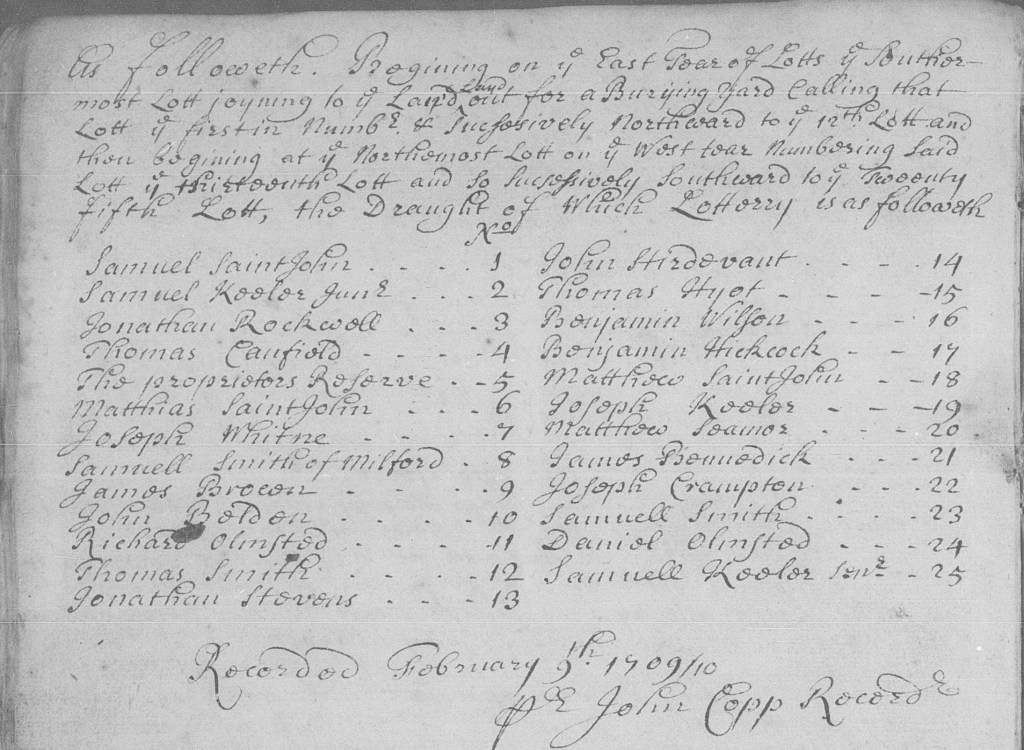 As followeth. Begining on ye East Tear of Lotts ye Souther-
most Lott joyning to ye Land Laid out for a Burying Yard Calling that
Lott ye first in Numbr. & Sucsesively Northward to ye 12th. Lott and
then begining at ye Northemost Lott on ye West tear Numbering Said
Lott ye thirteenth Lott and so Sucsessively Southward to ye Tweenty
fifth Lott, the Draught of Which Lotterry is as followeth
No
Samuel Saint John . - - . 1 John Stirdevant . - - - 14
Samuel Keeler Junr . - - . 2 Thomas Hyot - - - -15
Jonathan Rockwell . - - . 3 Benjamin Wilson - - - 16
Thomas Canfield - - - - 4 Benjamin Hickcock - - 17
The proprietors Reserve . -5 Matthew Saint John - -18
Matthias Saint John . - . 6 Joseph Keeler - - -19
Joseph Whitne - - - . 7 Matthew Seamor - - - 20
Samuell Smith of Milford . 8 James Bennedick - - . 21
James Brown - - - . 9 Joseph Crampton - - - 22
John Belden - - - - 10 Samuell Smith - - - - 23
Richard Olmsted - - - -11 Daniel Olmsted - - - 24
Thomas Smith - - - . 12 Samuell Keeler Senr - . 25
Jonathan Stevens - - - 13
Recorded February 9th. 1709/10
pr John Copp Recordr